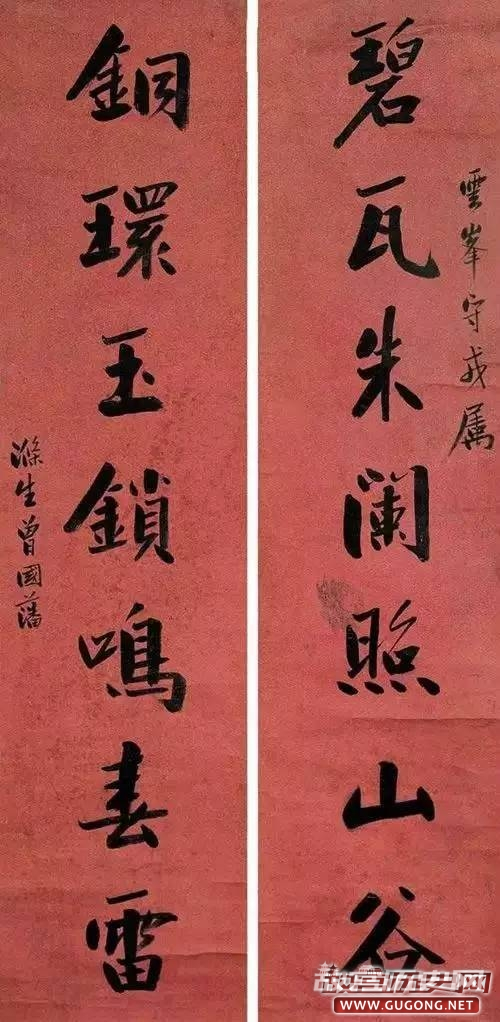 雲峯守戎属
碧瓦朱阑照山谷
銅環玉鎖鳴春雷
滌生曾國藩
故宫历史网
WWW.GUGONG.NET